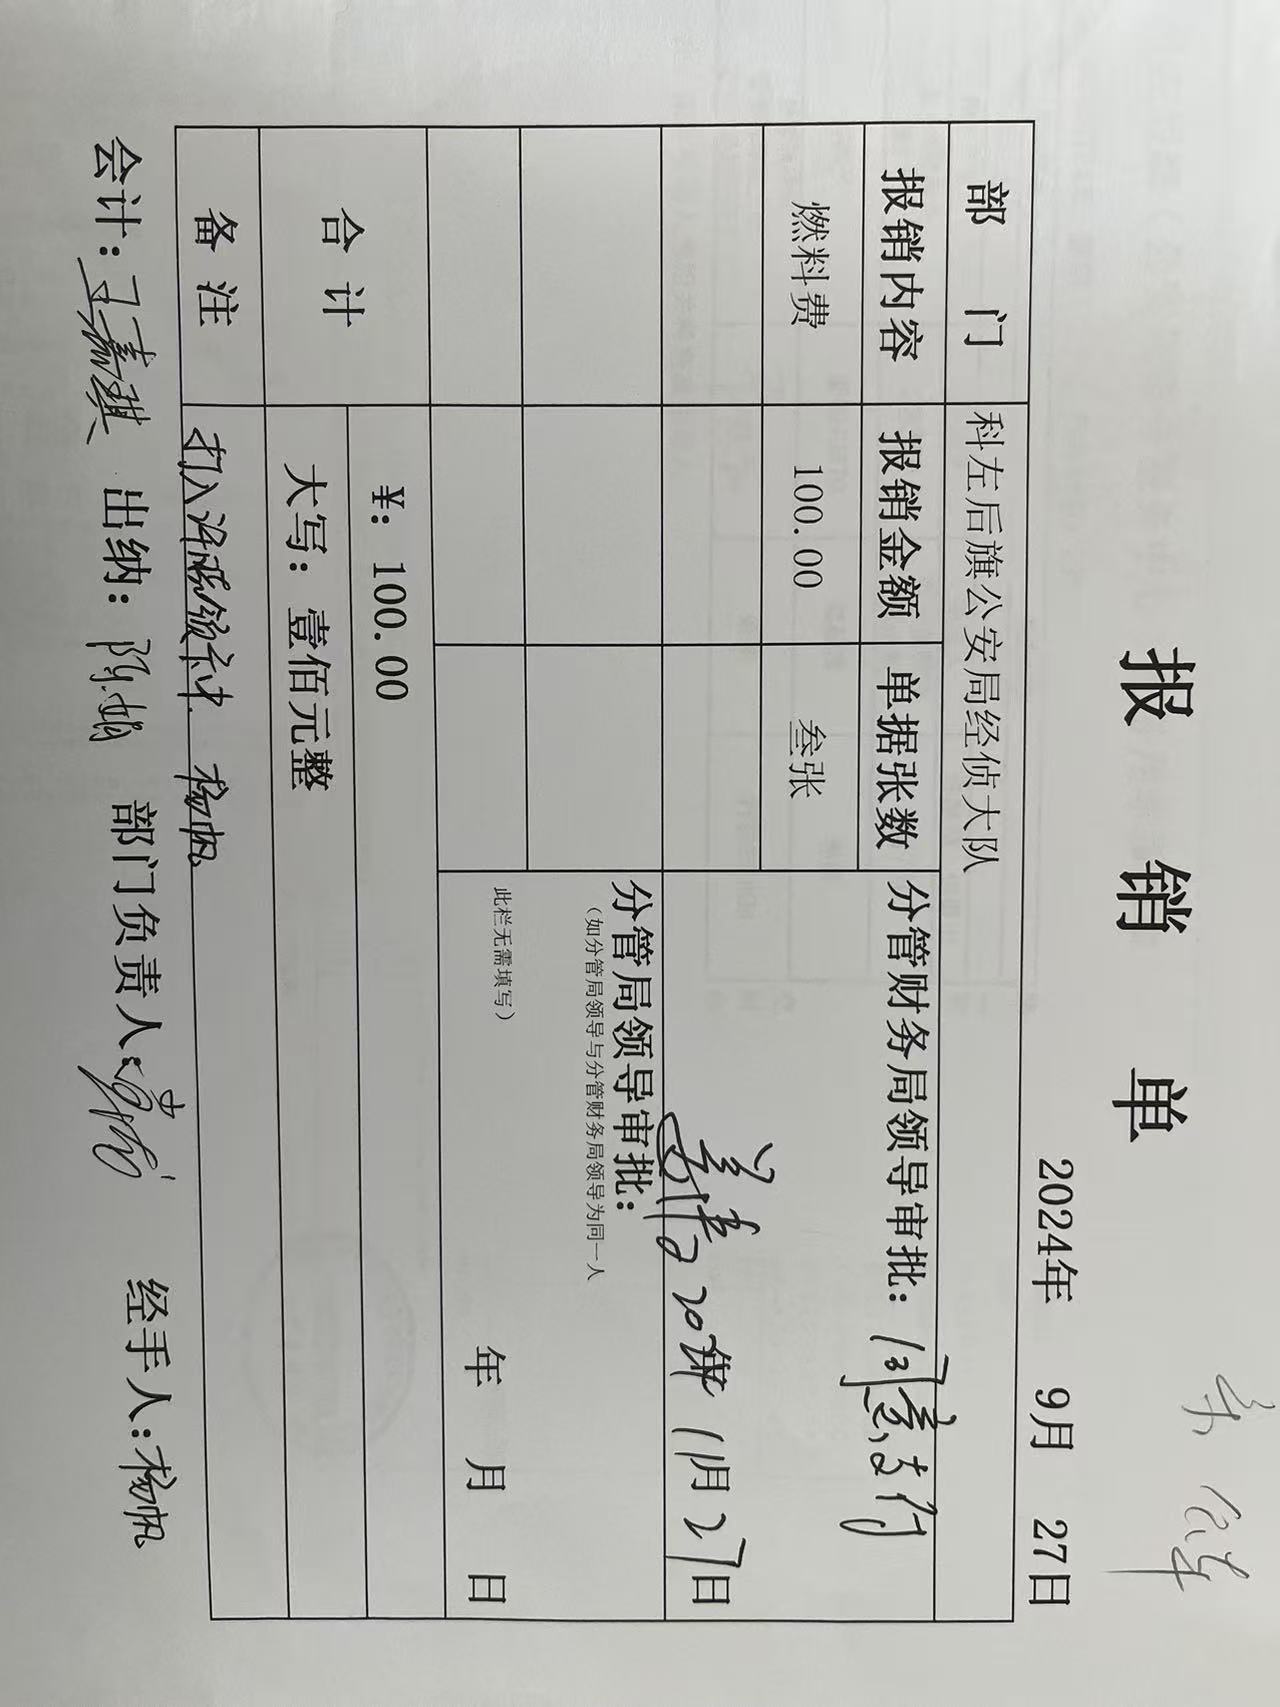 报 销 单
2024年 9月 27日
部 门 科左后旗公安局经侦大队
报销内容 报销金额 单据张数 分管财务局领导审批：同意支付
燃料费 100.00 叁张
2024年 11月 27日
分管局领导审批：
（如分管局领导与分管财务局领导为同一人
此栏无需填写）
年 月 日
合 计 ¥：100.00
大写：壹佰元整
备 注 打入 卡中 杨帆
会计：王嘉琪 出纳：陈娟 部门负责人： 经手人：杨帆